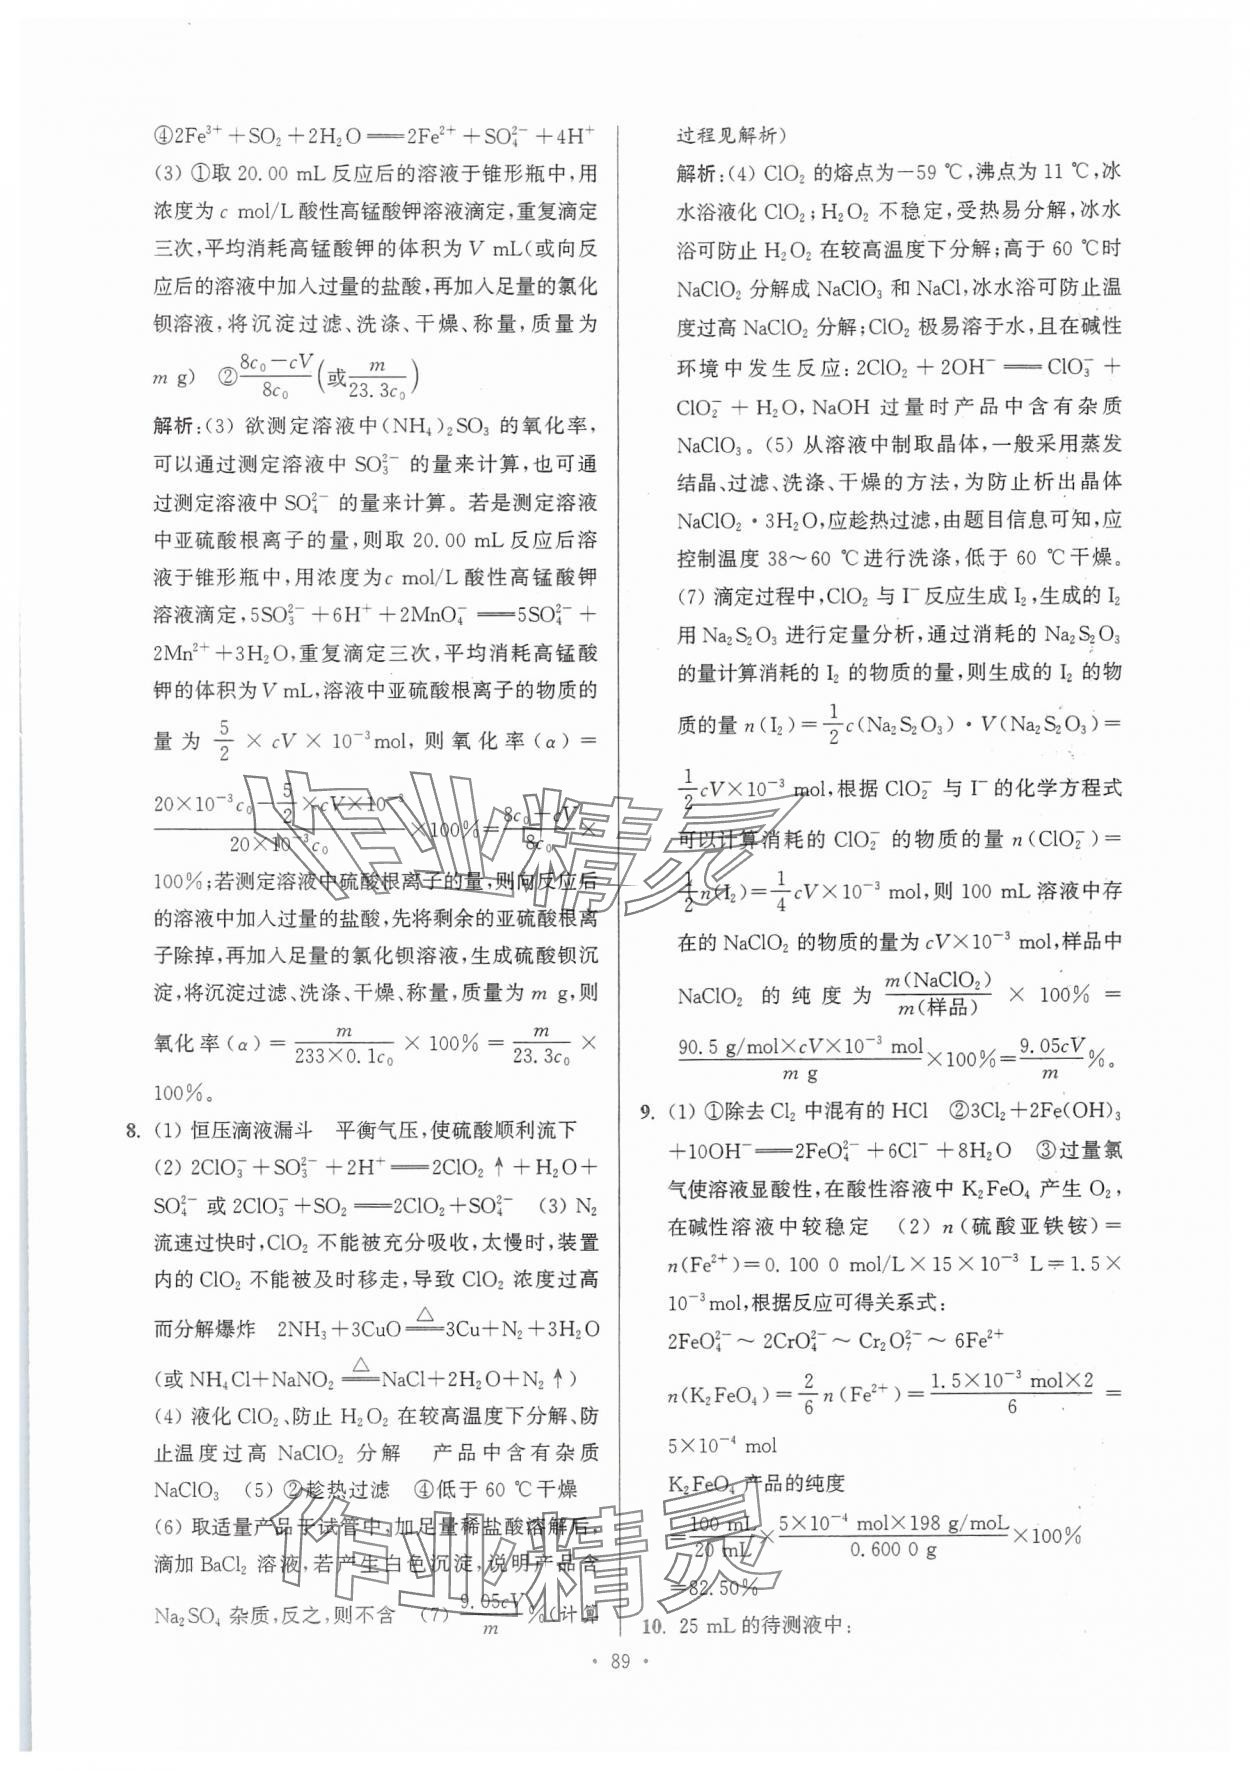 ④2Fe³⁺+SO₂+2H₂O══2Fe²⁺+SO₄²⁻+4H⁺
(3) ①取 20.00 mL 反应后的溶液于锥形瓶中,用
浓度为 c mol/L 酸性高锰酸钾溶液滴定,重复滴定
三次,平均消耗高锰酸钾的体积为 V mL(或向反
应后的溶液中加入过量的盐酸,再加入足量的氯化
钡溶液,将沉淀过滤、洗涤、干燥、称量,质量为
m g) ②(8c₀−cV)/(8c₀)(或 m/(23.3c₀))
解析:(3) 欲测定溶液中(NH₄)₂SO₃ 的氧化率,
可以通过测定溶液中 SO₃²⁻ 的量来计算,也可通
过测定溶液中 SO₄²⁻ 的量来计算。若是测定溶液
中亚硫酸根离子的量,则取 20.00 mL 反应后溶
液于锥形瓶中,用浓度为c mol/L 酸性高锰酸钾
溶液滴定,5SO₃²⁻+6H⁺+2MnO₄⁻══5SO₄²⁻+
2Mn²⁺+3H₂O,重复滴定三次,平均消耗高锰酸
钾的体积为V mL,溶液中亚硫酸根离子的物质的
量为 5/2 × cV × 10⁻³mol, 则氧化率(α)=
(20×10⁻³c₀−5/2×cV×10⁻³)/(20×10⁻³c₀)×100%=(8c₀−cV)/(8c₀)×
100%;若测定溶液中硫酸根离子的量,则向反应后
的溶液中加入过量的盐酸,先将剩余的亚硫酸根离
子除掉,再加入足量的氯化钡溶液,生成硫酸钡沉
淀,将沉淀过滤、洗涤、干燥、称量,质量为 m g,则
氧化率(α)= m/(233×0.1c₀) × 100% = m/(23.3c₀) ×
100%。
8. (1) 恒压滴液漏斗 平衡气压,使硫酸顺利流下
(2) 2ClO₃⁻+SO₃²⁻+2H⁺══2ClO₂↑+H₂O+
SO₄²⁻ 或 2ClO₃⁻+SO₂══2ClO₂+SO₄²⁻ (3) N₂
流速过快时,ClO₂ 不能被充分吸收,太慢时,装置
内的 ClO₂ 不能被及时移走,导致 ClO₂ 浓度过高
而分解爆炸 2NH₃+3CuO═△═3Cu+N₂+3H₂O
(或 NH₄Cl+NaNO₂═△═NaCl+2H₂O+N₂↑)
(4) 液化 ClO₂、防止 H₂O₂ 在较高温度下分解、防
止温度过高 NaClO₂ 分解 产品中含有杂质
NaClO₃ (5) ②趁热过滤 ④低于 60 ℃干燥
(6) 取适量产品于试管中,加足量稀盐酸溶解后,
滴加 BaCl₂ 溶液,若产生白色沉淀,说明产品含
Na₂SO₄ 杂质,反之,则不含 (7) 9.05cV/m %(计算
过程见解析)
解析:(4) ClO₂ 的熔点为−59 ℃,沸点为 11 ℃,冰
水浴液化 ClO₂;H₂O₂ 不稳定,受热易分解,冰水
浴可防止 H₂O₂ 在较高温度下分解;高于 60 ℃时
NaClO₂ 分解成 NaClO₃ 和 NaCl,冰水浴可防止温
度过高 NaClO₂ 分解;ClO₂ 极易溶于水,且在碱性
环境中发生反应:2ClO₂+2OH⁻══ClO₃⁻+
ClO₂⁻+H₂O,NaOH 过量时产品中含有杂质
NaClO₃。(5) 从溶液中制取晶体,一般采用蒸发
结晶、过滤、洗涤、干燥的方法,为防止析出晶体
NaClO₂·3H₂O,应趁热过滤,由题目信息可知,应
控制温度 38～60 ℃进行洗涤,低于 60 ℃干燥。
(7) 滴定过程中,ClO₂ 与 I⁻反应生成 I₂,生成的 I₂
用 Na₂S₂O₃ 进行定量分析,通过消耗的 Na₂S₂O₃
的量计算消耗的 I₂ 的物质的量,则生成的 I₂ 的物
质的量 n(I₂)=1/2c(Na₂S₂O₃)·V(Na₂S₂O₃)=
1/2cV×10⁻³ mol,根据 ClO₂⁻ 与 I⁻ 的化学方程式
可以计算消耗的 ClO₂⁻ 的物质的量 n(ClO₂⁻)=
1/2n(I₂)=1/4cV×10⁻³ mol,则 100 mL 溶液中存
在的 NaClO₂ 的物质的量为 cV×10⁻³ mol,样品中
NaClO₂ 的纯度为 m(NaClO₂)/m(样品) × 100% =
(90.5 g/mol×cV×10⁻³ mol)/(m g)×100%=9.05cV/m %。
9. (1) ①除去 Cl₂ 中混有的 HCl ②3Cl₂+2Fe(OH)₃
+10OH⁻══2FeO₄²⁻+6Cl⁻+8H₂O ③过量氯
气使溶液显酸性,在酸性溶液中 K₂FeO₄ 产生 O₂,
在碱性溶液中较稳定 (2) n(硫酸亚铁铵)=
n(Fe²⁺)=0.100 0 mol/L×15×10⁻³ L=1.5×
10⁻³mol,根据反应可得关系式:
2FeO₄²⁻～2CrO₄²⁻～Cr₂O₇²⁻～6Fe²⁺
n(K₂FeO₄)=2/6 n(Fe²⁺)=(1.5×10⁻³ mol×2)/6=
5×10⁻⁴ mol
K₂FeO₄ 产品的纯度
=100 mL/20 mL×(5×10⁻⁴ mol×198 g/moL)/(0.600 0 g)×100%
=82.50%
10. 25 mL的待测液中:
· 89 ·
作业精灵
作业精灵